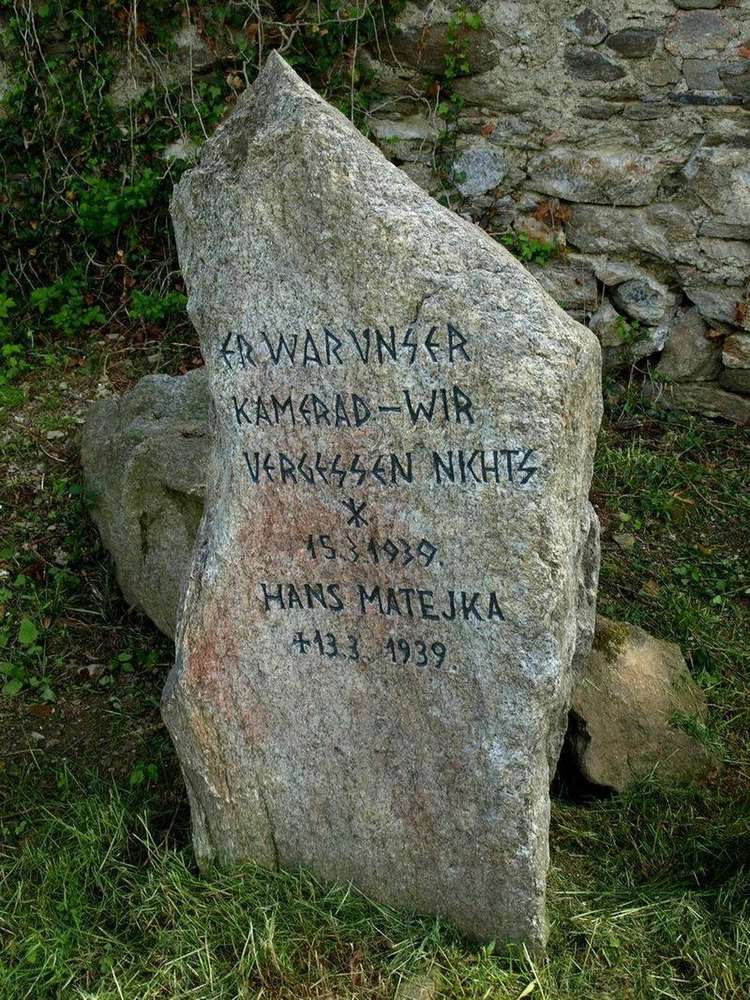 ER WAR UNSER
KAMERAD – WIR
VERGESSEN NICHTS
*
15.3.1939.
HANS MATEJKA
+13.3.1939.